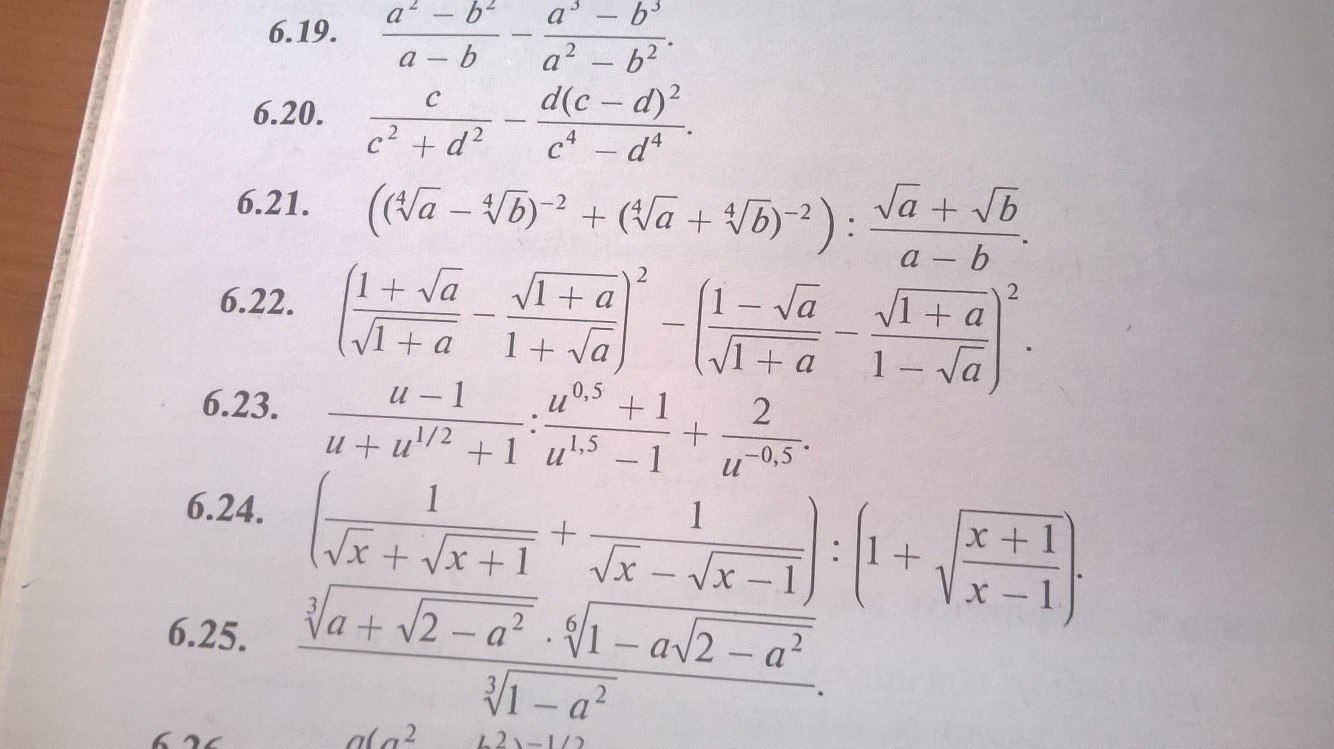 6.19. \frac{a^2 - b^2}{a - b} - \frac{a^3 - b^3}{a^2 - b^2}.
6.20. \frac{c}{c^2 + d^2} - \frac{d(c - d)^2}{c^4 - d^4}.
6.21. ((\sqrt[4]{a} - \sqrt[4]{b})^{-2} + (\sqrt[4]{a} + \sqrt[4]{b})^{-2}) : \frac{\sqrt{a} + \sqrt{b}}{a - b}.
6.22. (\frac{1 + \sqrt{a}}{\sqrt{1 + a}} - \frac{\sqrt{1 + a}}{1 + \sqrt{a}})^2 - (\frac{1 - \sqrt{a}}{\sqrt{1 + a}} - \frac{\sqrt{1 + a}}{1 - \sqrt{a}})^2.
6.23. \frac{u - 1}{u + u^{1/2} + 1} : \frac{u^{0,5} + 1}{u^{1,5} - 1} + \frac{2}{u^{-0,5}}.
6.24. (\frac{1}{\sqrt{x} + \sqrt{x + 1}} + \frac{1}{\sqrt{x} - \sqrt{x - 1}}) : (1 + \sqrt{\frac{x + 1}{x - 1}}).
6.25. \frac{\sqrt[3]{a + \sqrt{2 - a^2}} \cdot \sqrt[6]{1 - a\sqrt{2 - a^2}}}{\sqrt[3]{1 - a^2}}.
6.26.